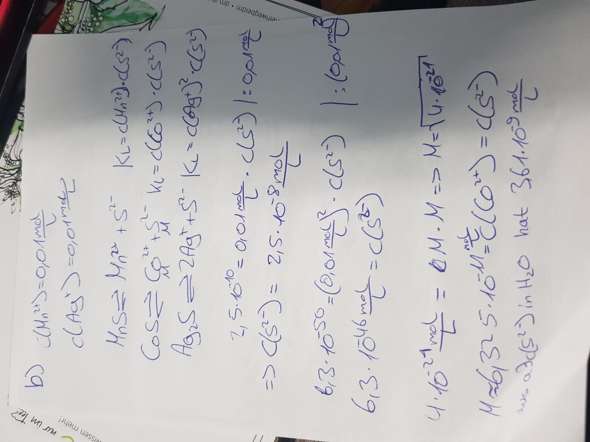 b) c(Mn²⁺)=0,01 mol/L
c(Ag⁺)=0,01 mol/L
MnS ⇌ Mn²⁺+S²⁻ KL=c(Mn²⁺)·c(S²⁻)
CoS ⇌ Co²⁺+S²⁻ KL=c(Co²⁺)·c(S²⁻)
M M
Ag₂S ⇌ 2Ag⁺+S²⁻ KL=c(Ag⁺)²·c(S²⁻)
2,5·10⁻¹⁰=0,01 mol/L·c(S²⁻) |:0,01 mol/L
=> c(S²⁻)=2,5·10⁻⁸ mol/L
6,3·10⁻⁵⁰=(0,01 mol/L)²·c(S²⁻) |:(0,01 mol/L)²
6,3·10⁻⁴⁶ mol/L=c(S²⁻)
4·10⁻²¹ mol/L = M·M => M=√4·10⁻²¹
M≈6,325·10⁻¹¹ mol/L=c(Co²⁺)=c(S²⁻)
c(S²⁻) in H₂O hat 361·10⁻⁹ mol/L
wissen mehr!
nur um